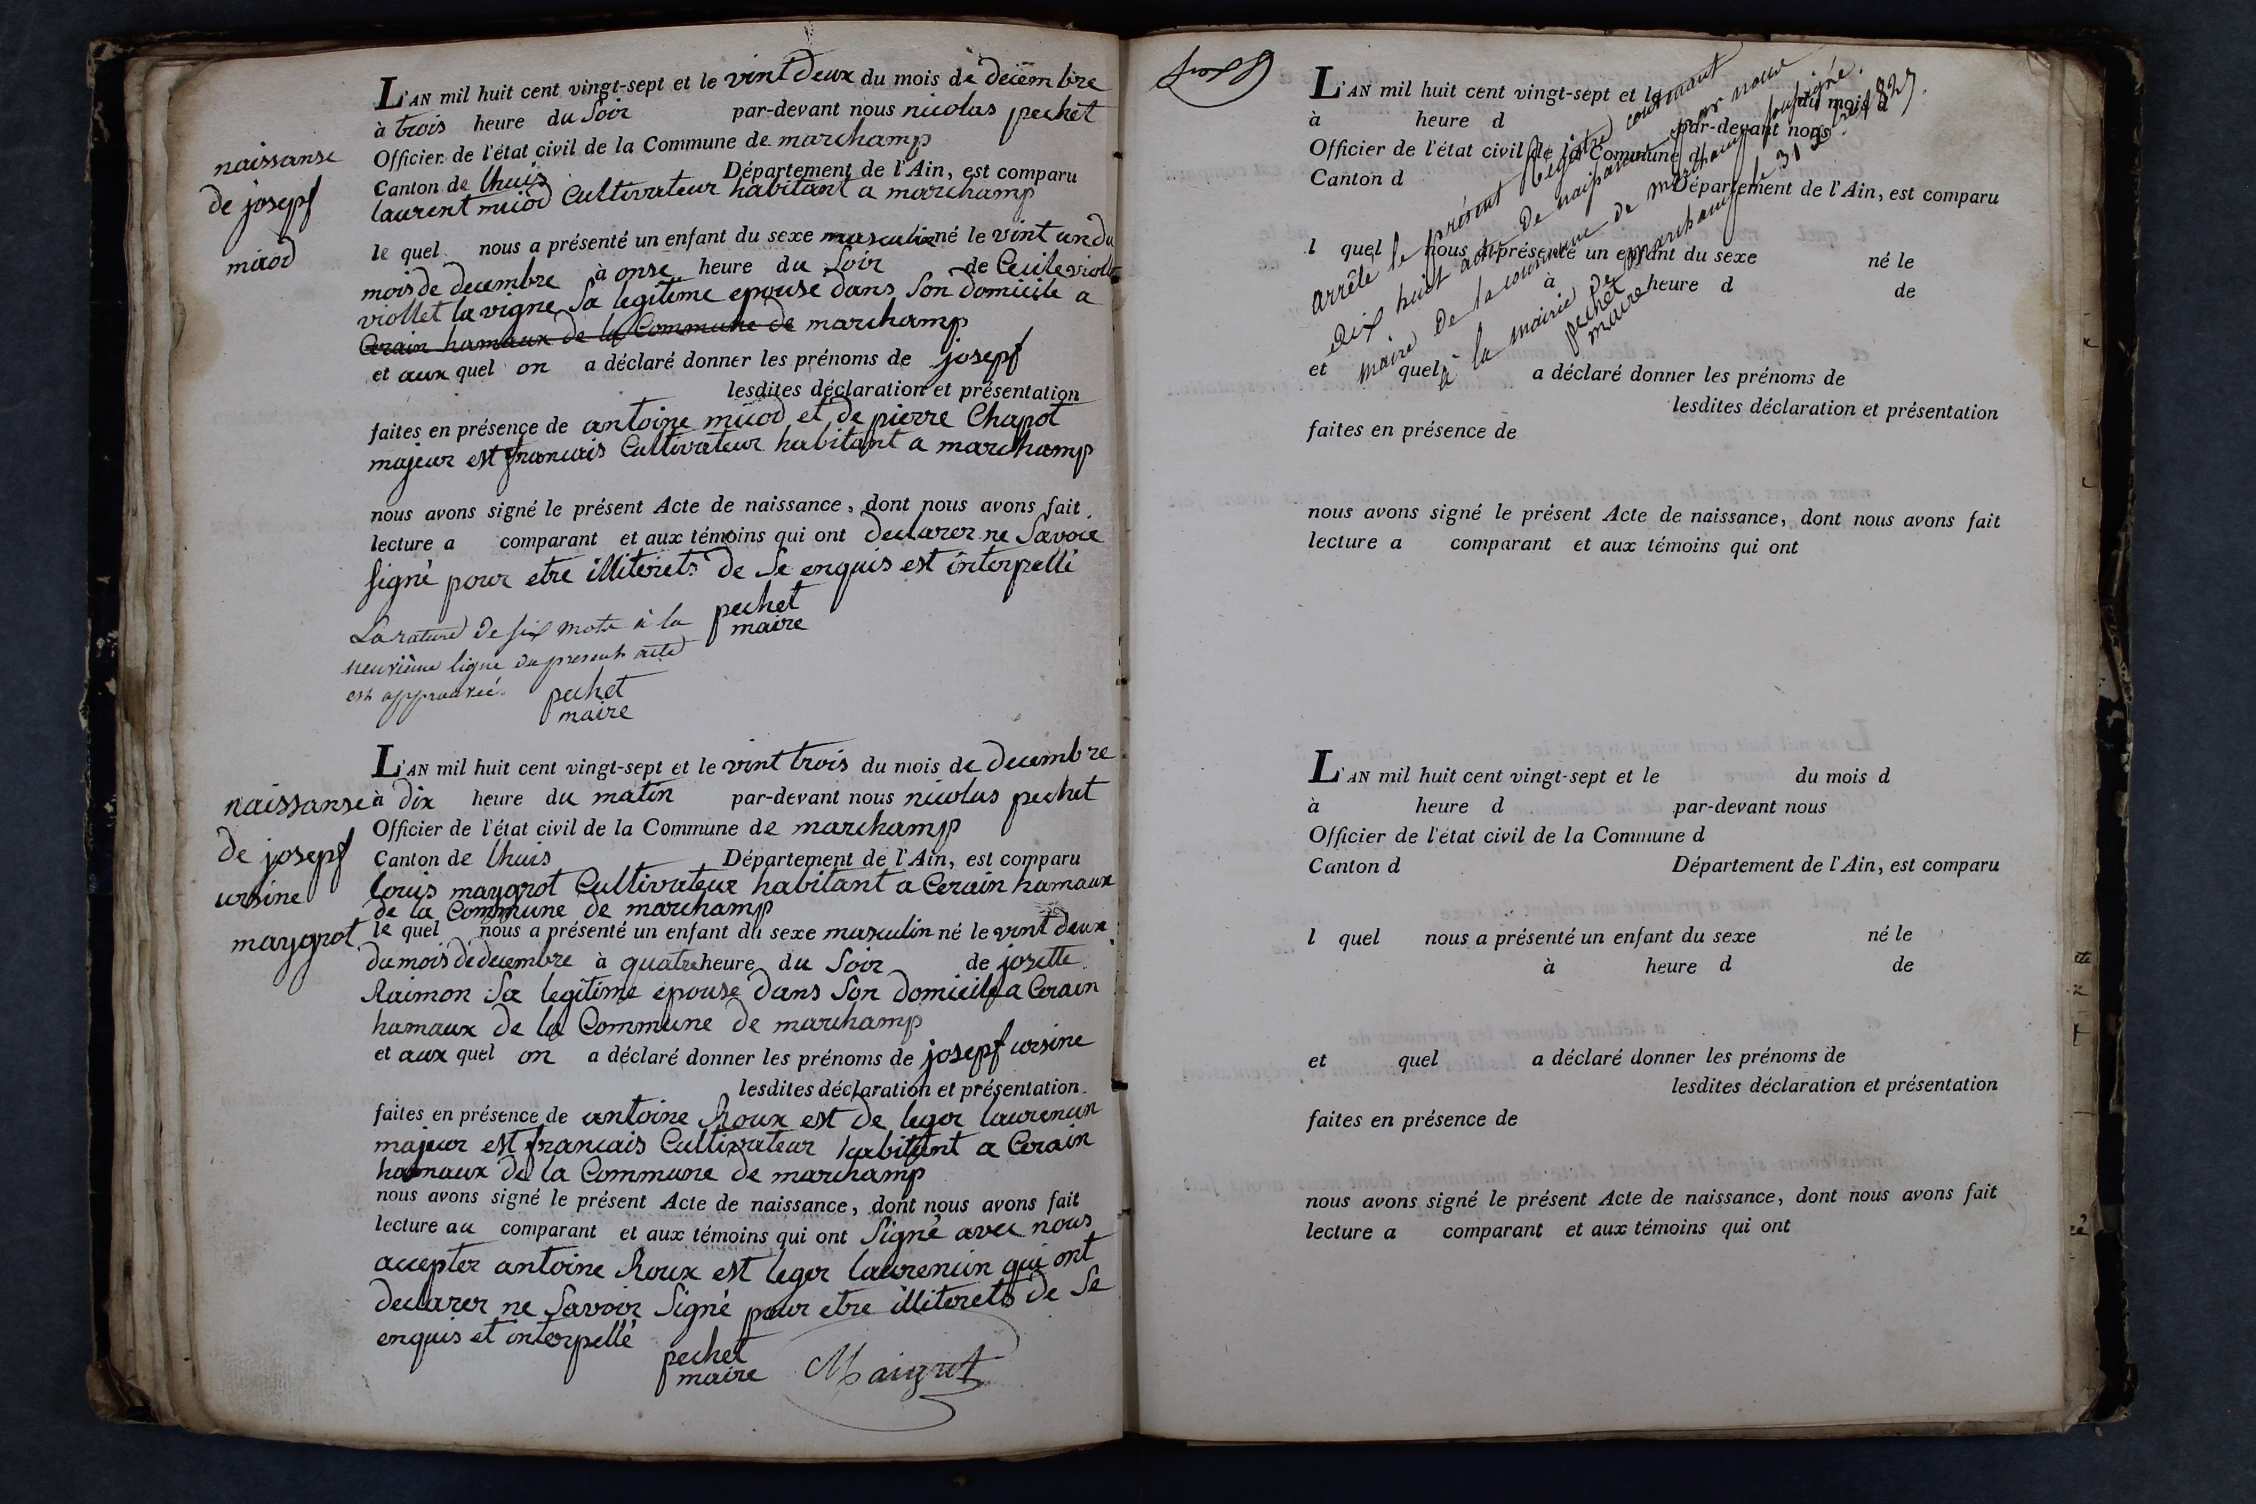 L'AN mil huit cent vingt-sept et le vint deux du mois de decembre
à trois heure du soir par-devant nous nicolas pechet
Officier de l'état civil de la Commune de marchamp
Canton de lhuis Département de l'Ain, est comparu
laurent miiod Cultivateur habitant a marchamp
le quel nous a présenté un enfant du sexe masculin né le vint un du
mois de decembre à onse heure du soir de Cecile violle
viollet la vigne sa legitime epouse dans son domicile a
Cerain hamaux de la Commune de marchamp
et aux quel on a déclaré donner les prénoms de josepf
lesdites déclaration et présentation
faites en présence de antoine miiod et de pierre Chapot
majeur est francais Cultivateur habitant a marchamp
nous avons signé le présent Acte de naissance, dont nous avons fait
lecture a comparant et aux témoins qui ont declarer ne savoir
signé pour etre illiterets de se enquis est interpellé
pechet
maire
La rature de six mots à la
neuvième ligne du present acte
est approuvée.
pechet
maire
naissanse
de josepf
miiod
L'AN mil huit cent vingt-sept et le vint trois du mois de decembre
à dix heure du matin par-devant nous nicolas pechet
Officier de l'état civil de la Commune de marchamp
Canton de lhuis Département de l'Ain, est comparu
louis maygrot Cultivateur habitant a Cerain hamaux
de la Commune de marchamp
le quel nous a présenté un enfant du sexe masculin né le vint deux
du mois de decembre à quatre heure du soir de josette
Raimon sa legitime epouse dans son domicile a Cerain
hamaux de la Commune de marchamp
et aux quel on a déclaré donner les prénoms de josepf ursine
lesdites déclaration et présentation
faites en présence de antoine Roux est de leger laurencin
majeur est francais Cultivateur habitant a Cerain
hamaux de la Commune de marchamp
nous avons signé le présent Acte de naissance, dont nous avons fait
lecture au comparant et aux témoins qui ont signé avec nous
accepter antoine Roux est leger laurencin qui ont
declarer ne savoir signé pour etre illiterets de se
enquis et interpellé
pechet
maire
Maigrot
naissanse
de josepf
ursine
maygrot
L'AN mil huit cent vingt-sept et le du mois d
à heure d par-devant nous
Officier de l'état civil de la Commune d
Canton d Département de l'Ain, est comparu
l quel nous a présenté un enfant du sexe né le
à heure d de
et quel a déclaré donner les prénoms de
lesdites déclaration et présentation
faites en présence de
nous avons signé le présent Acte de naissance, dont nous avons fait
lecture a comparant et aux témoins qui ont
arrêté le présent Registre contenant
dix huit actes de naissance par nous
maire de la commune de marchamp soussigné.
à la mairie de marchamp le 31 1827.
pechet
maire
L'AN mil huit cent vingt-sept et le du mois d
à heure d par-devant nous
Officier de l'état civil de la Commune d
Canton d Département de l'Ain, est comparu
l quel nous a présenté un enfant du sexe né le
à heure d de
et quel a déclaré donner les prénoms de
lesdites déclaration et présentation
faites en présence de
nous avons signé le présent Acte de naissance, dont nous avons fait
lecture a comparant et aux témoins qui ont